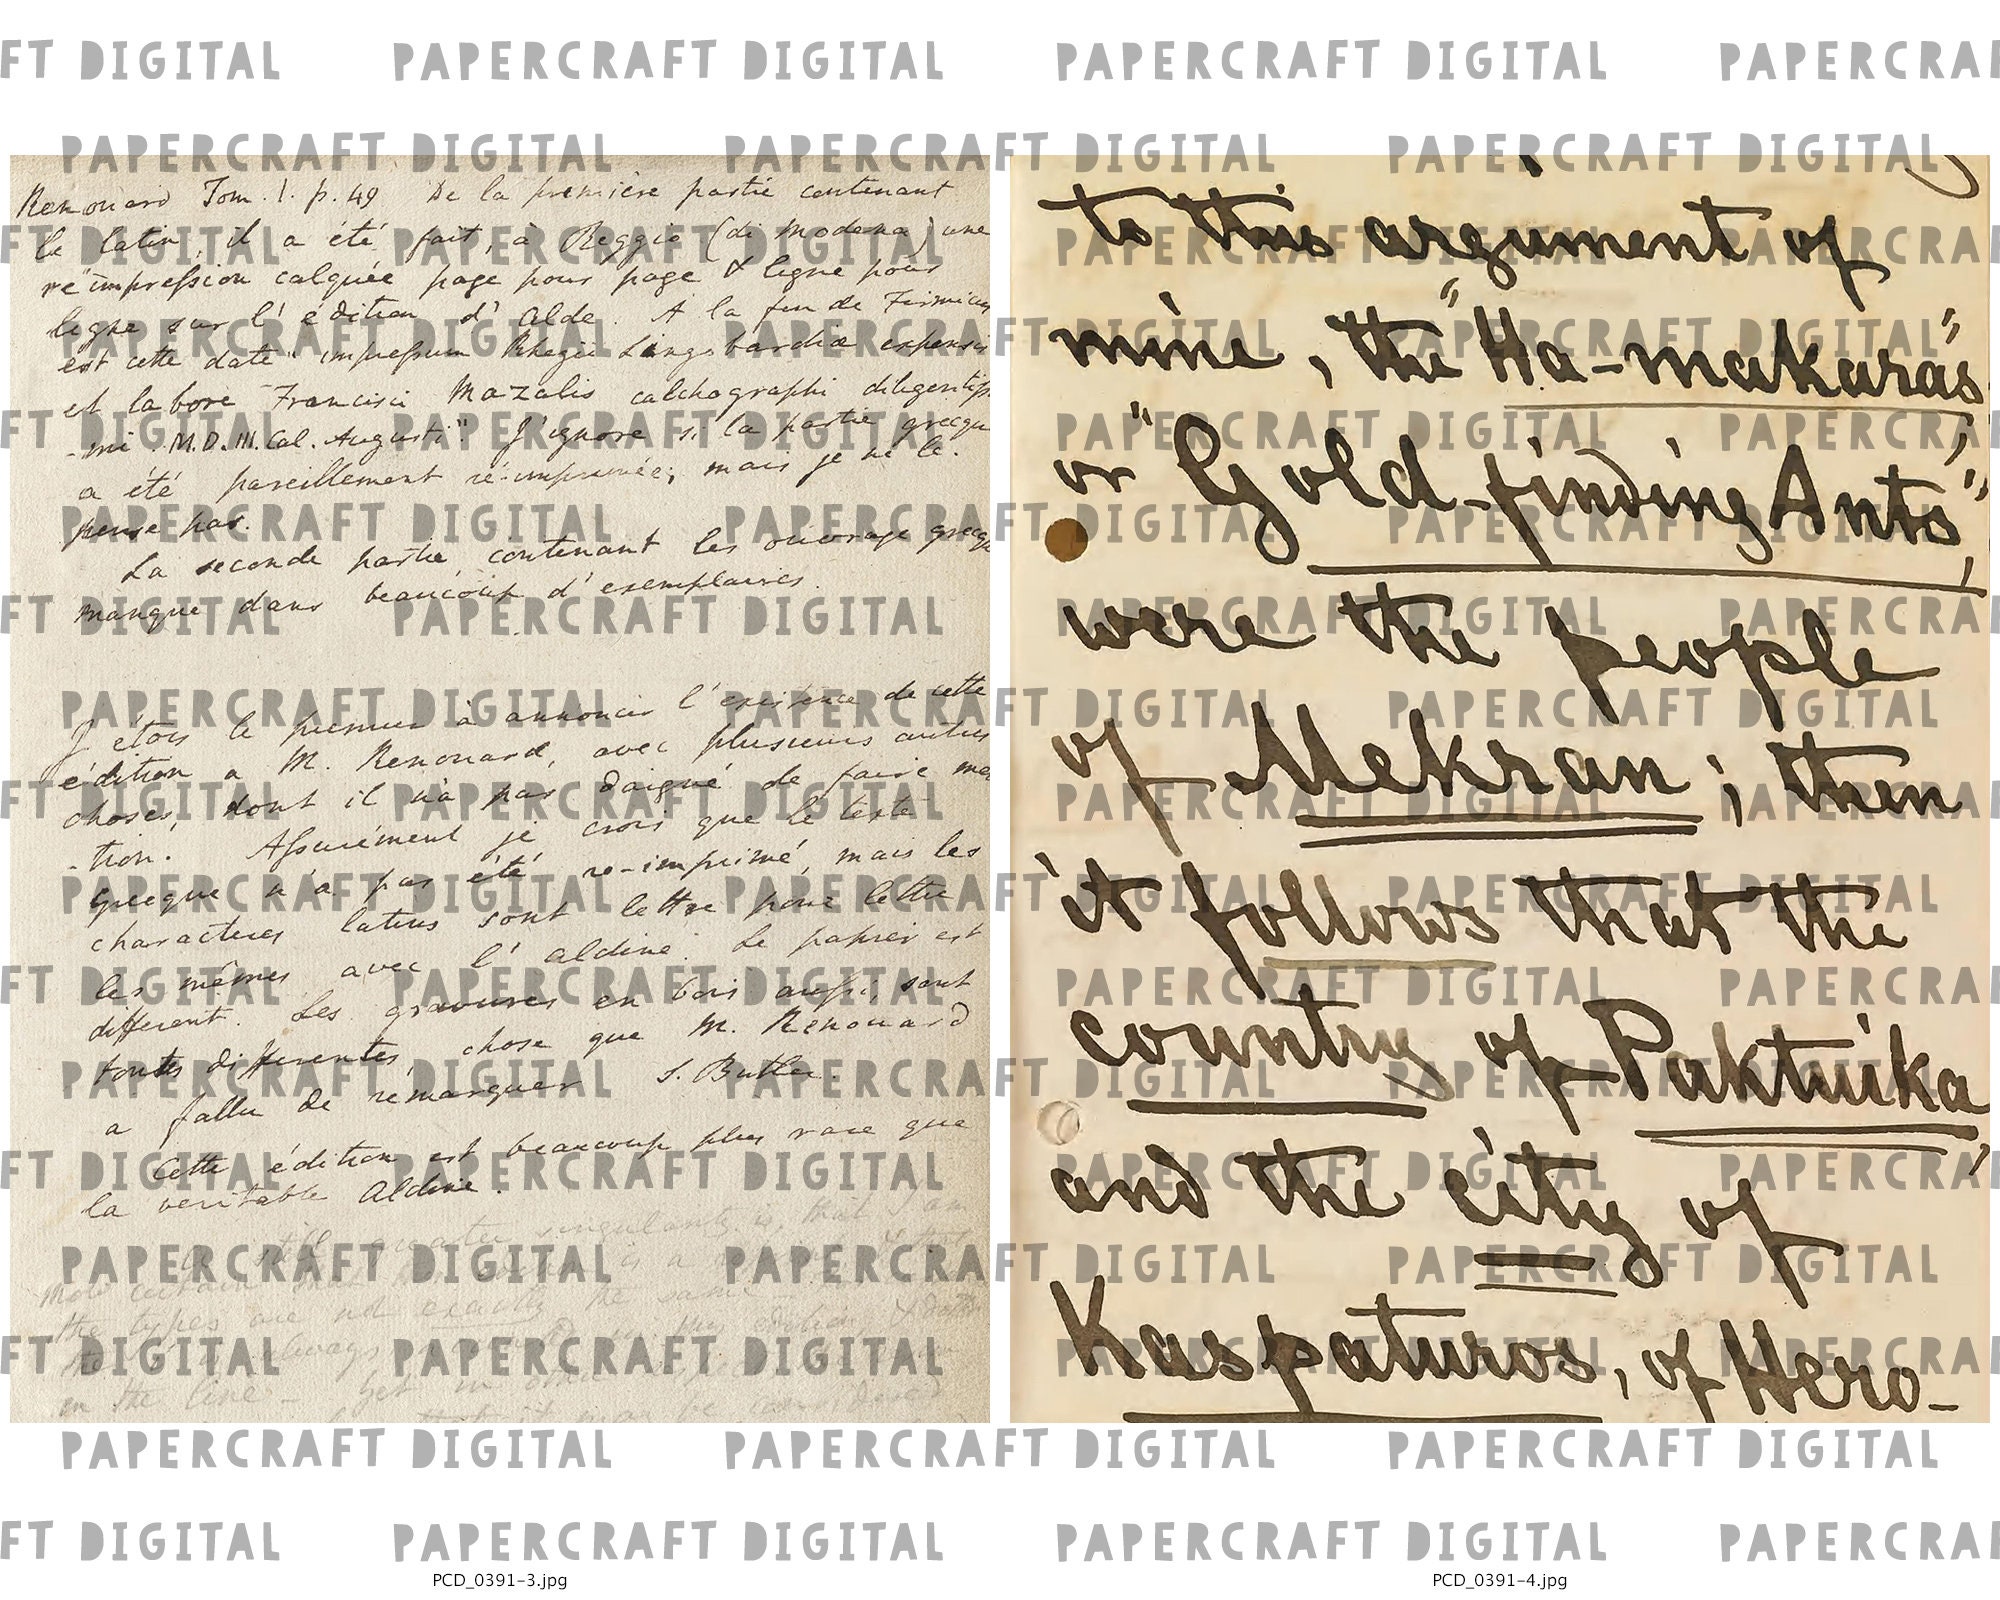 Renouard Tom. 1. p. 49 De la première partie contenant
le latin, il a été fait, à Reggio (di Modena) une
réimpression calquée page pour page & ligne pour
ligne sur l'édition d'Alde. A la fin de Firmicus
est cette date "impressum Rhegii Lingobardiæ expensis
et labore Francisci Mazalis calchographi diligentiss
-mi. M.D.III. Cal. Augusti". J'ignore si la partie grecque
a été pareillement ré-imprimée; mais je ne le
pense pas.
La seconde partie, contenant les ouvrage grecqu
manque dans beaucoup d'exemplaires.
J'étois le premier à annoncer l'existence de cette
édition a M. Renouard, avec plusieurs autres
choses, dont il n'a pas daigné de faire men
-tion. Assurément je crois que le texte
Grecque n'a pas été re-imprimé, mais les
characteres latins sont lettre pour lettre
les mêmes avec l'aldine. Le papier est
different. Les gravures en bois aussi, sont
toutes differentes chose que M. Renouard
a fallu de remarquer S. Butler.
Cette édition est beaucoup plus rare que
la veritable Aldine.
still greater singularity is that I am
most certain that this edition is a
the types are not exactly the same
always in this edition
in the line - yet in
that it may be considered
to this argument of
mine, the "Ha-makaras"
or "Gold-finding Ants,"
were the people
of Mekran; then
it follows that the
country of Paktuika,
and the city of
Kaspaturos, of Hero-
PAPERCRAFT DIGITAL
PCD_0391-3.jpg
PCD_0391-4.jpg